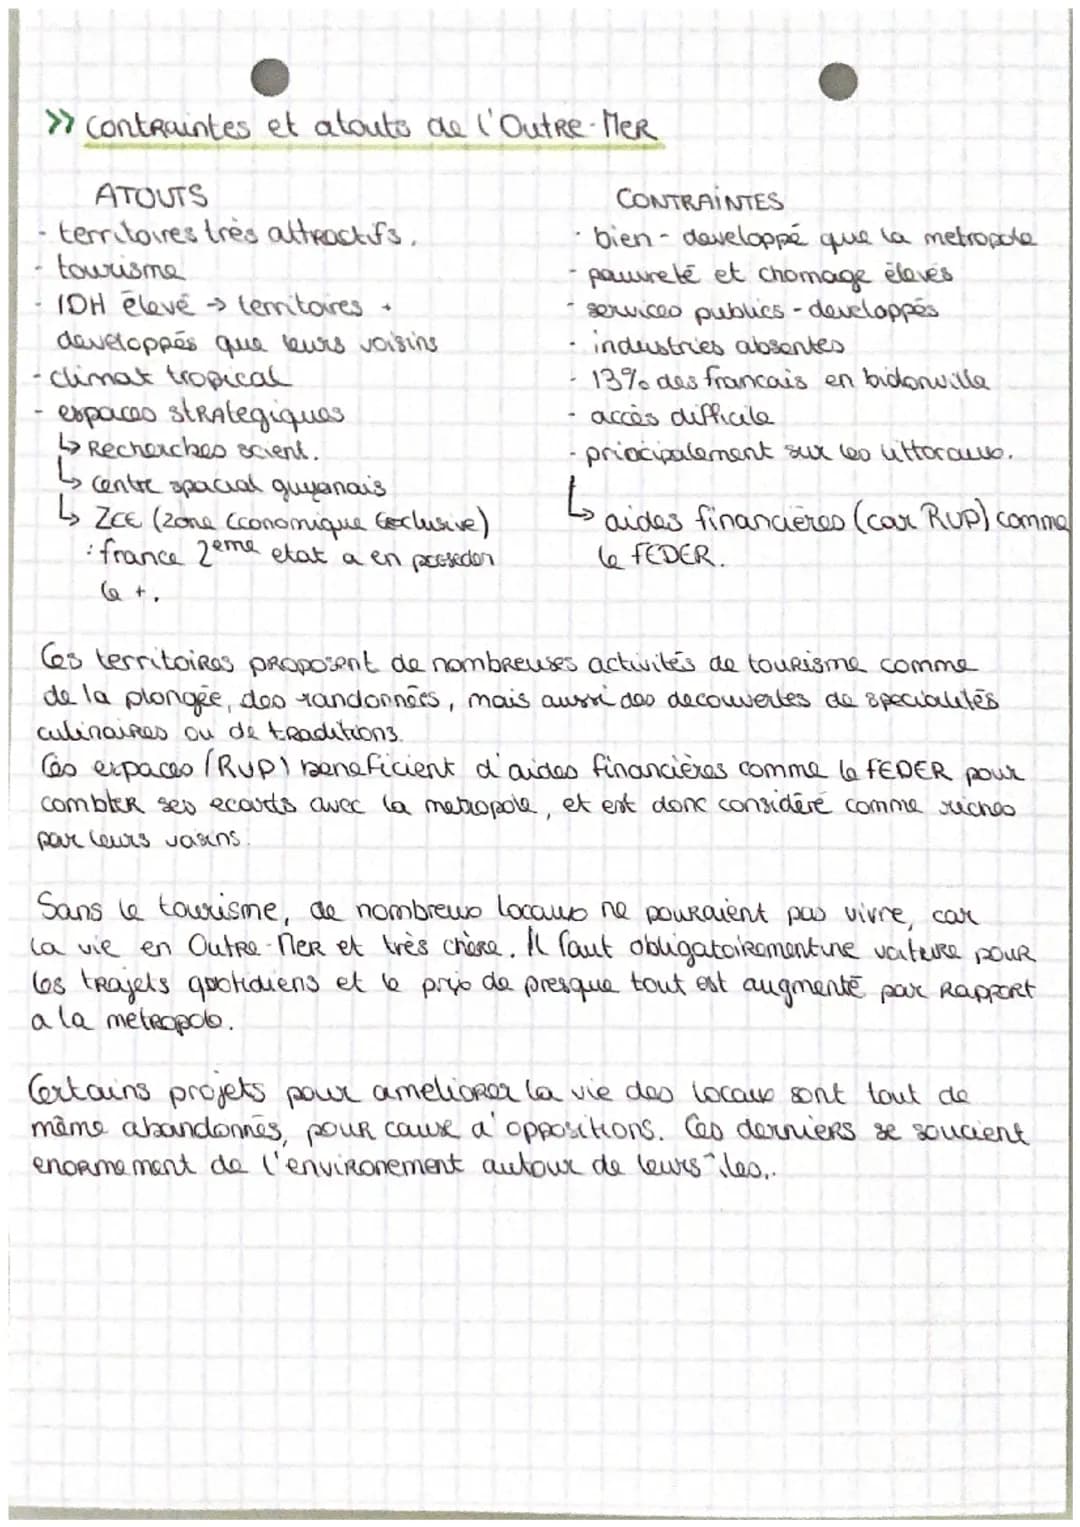 >> contraintes et atouts de l'Outre-Mer
ATOUTS
- territoires très attractifs.
- tourisme
- IDH élevé → territoires +
developpés que leurs voisins
- climat tropical
- espaces stratégiques
↳ Recherches scient.
↳ centre spacial guyanais
↳ ZEE (Zone Economique Exclusive)
: france 2eme etat a en posseder
le +.
CONTRAINTES
- bien - developpé que la metropole
- pauvreté et chomage élevés
- services publics - developpés
- industries absentes
- 13% des francais en bidonville
- accès difficile
- principalement sur les littoraux.
↳ aides financières (car RUP) comme
le FEDER.
Ces territoires proposent de nombreuses activités de tourisme comme
de la plongée, des randonnées, mais aussi des decouvertes de specialités
culinaires ou de traditions.
Ces espaces (RUP) beneficient d'aides financières comme le FEDER pour
combler ses ecarts avec la metropole, et est donc considéré comme riches
par leurs voisins.
Sans le tourisme, de nombreux locaux ne pouraient pas vivre, car
la vie en Outre-Mer et très chère. Il faut obligatoirement une voiture pour
les trajets quotidiens et le prix de presque tout est augmenté par rapport
a la metropole.
Certains projets pour ameliorer la vie des locaux sont tout de
même abandonnés, pour cause d'oppositions. Ces derniers se soucient
enormement de l'environement autour de leurs îles.